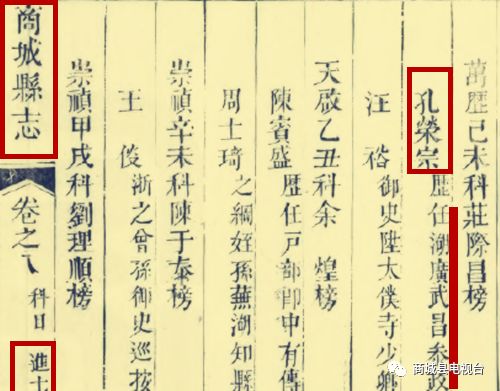 萬歷己未科莊際昌榜
孔榮宗歷任湖廣武昌參政
汪裕御史陞太僕寺少卿
天啟乙丑科余煌榜
陳賓盛歷任戶部郎中有傳
周士琦之綱姪孫蕪湖知縣
崇禎辛未科陳于泰榜
王俊浙之曾孫御史巡按
崇禎甲戌科劉理順榜
商城縣志
卷之八
科目
進士
商城县电视台